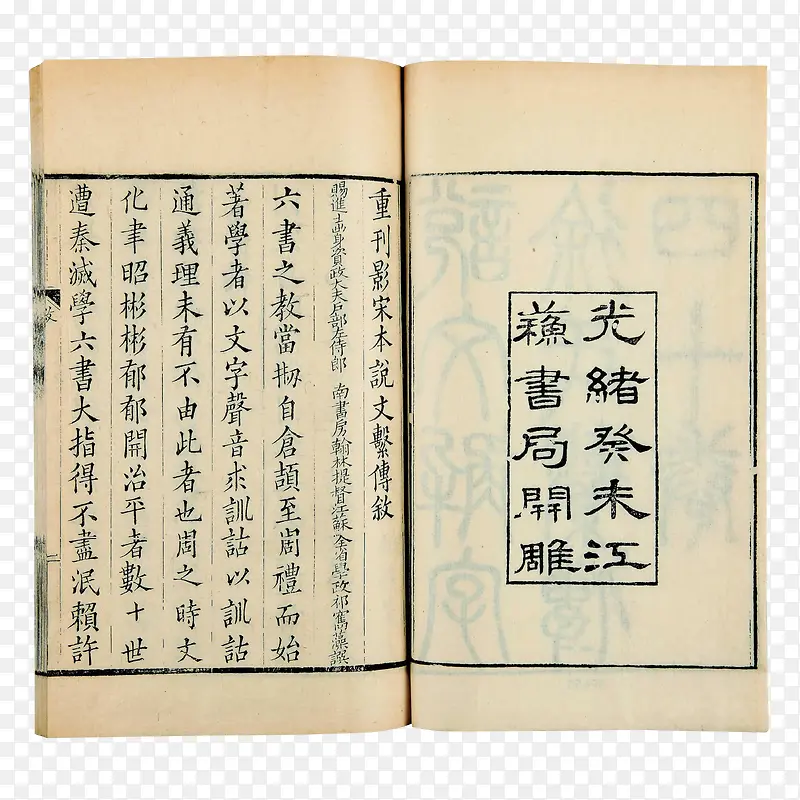 光緒癸未江
蘇書局開雕
重刊影宋本說文繫傳敘
賜進士出身資政大夫戶部左侍郎 南書房翰林提督江蘇全省學政祁寯藻譔
六書之教當刱自倉頡至周禮而始
著學者以文字聲音求訓詁以訓詁
通義理未有不由此者也周之時文
化聿昭彬彬郁郁開治平者數十世
遭秦滅學六書大指得不盡泯賴許
敘